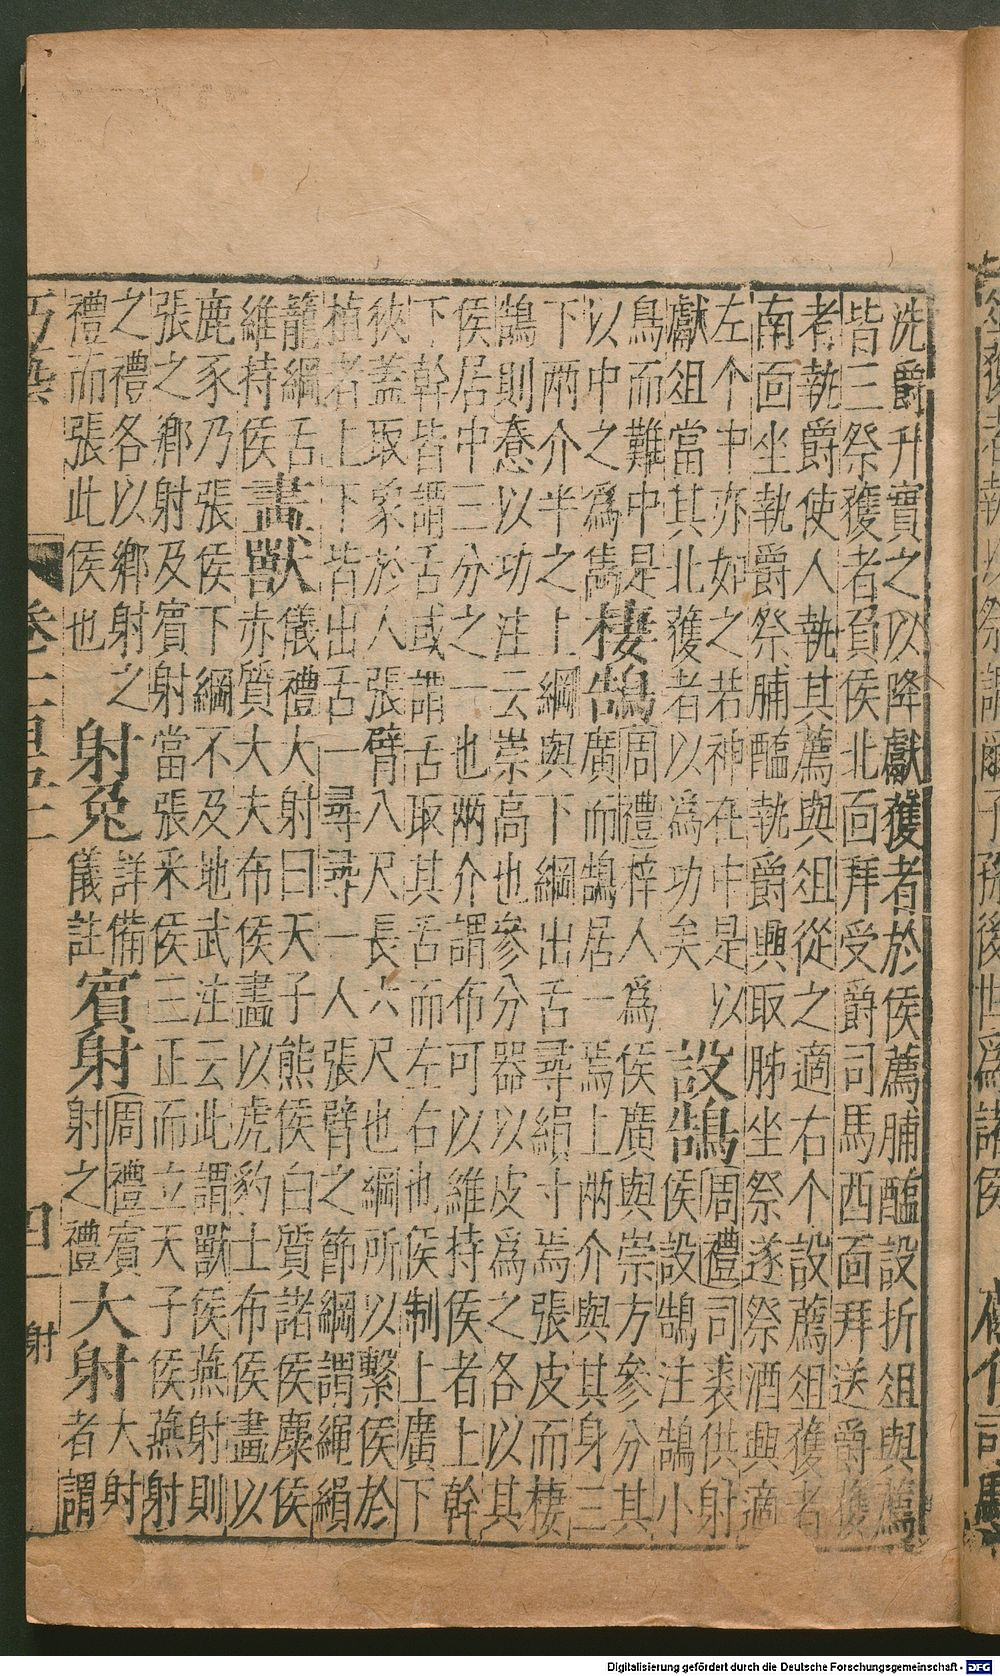 洗爵升實之以降獻獲者於侯薦脯醢設折俎與薦
皆三祭獲者負侯北靣拜受爵司馬西靣拜送爵獲
者執爵使人執其薦與俎從之適右个設薦俎獲者
南靣坐執爵祭脯醢執爵興取肺坐祭遂祭酒興適
左个中亦如之若神在中是以
獻俎當其北獲者以為功矣
設鵠
周禮司裘供射
侯設鵠注鵠小
鳥而難中是
以中之為雋
棲鵠
周禮梓人為侯廣與崇方參分其
廣而鵠居一焉上兩介與其身三
下兩介半之上綱與下綱出舌尋縜寸焉張皮而棲
鵠則惷以功注云崇高也參分器以皮為之各以其
侯居中三分之一也兩介謂布可以維持侯者上幹
下幹皆謂舌或謂舌取其舌而左右也侯制上廣下
狹蓋取象於人張臂八尺長六尺也綱所以繫侯於
植者上下皆出舌一尋尋一人張臂之節綱謂繩縜
籠綱舌
維持侯
畫獸
儀禮大射曰天子熊侯白質諸侯麋侯
赤質大夫布侯畫以虎豹士布侯畫以
鹿豕乃張侯下綱不及地武注云此謂獸侯燕射則
張之鄉射及賓射當張采侯三正而立天子侯燕射
之禮各以鄉射之
禮而張此侯也
射兔
詳備
儀註
賓射
周禮賓
射之禮
大射
大射
者謂
巧藝
四
射
Digitalisierung gefördert durch die Deutsche Forschungsgemeinschaft - DFG